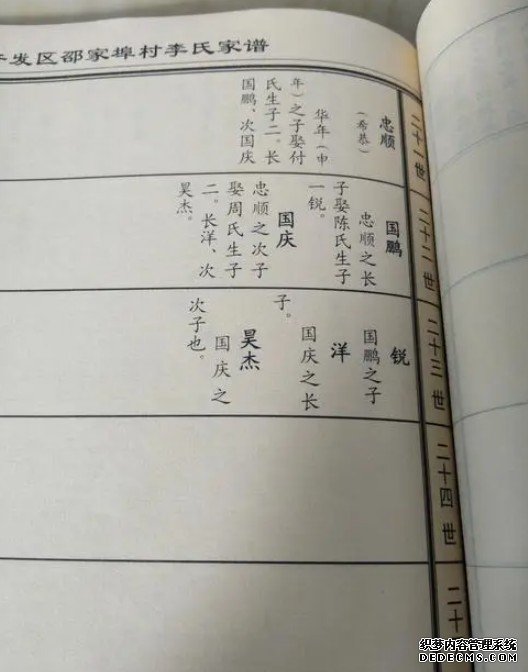 发区邵家埠村李氏家谱
二十一世
忠顺
（希恭）
华年（申
年）之子娶付
氏生子二。长
国鹏、次国庆
二十二世
国鹏
忠顺之长
子娶陈氏生子
一锐。
国庆
忠顺之次子
娶周氏生子
二。长洋、次
昊杰。
二十三世
锐
国鹏之子
洋
国庆之长
子。
昊杰
国庆之
次子也。
二十四世
二十
织梦内容管理系统
DEDECMS.COM